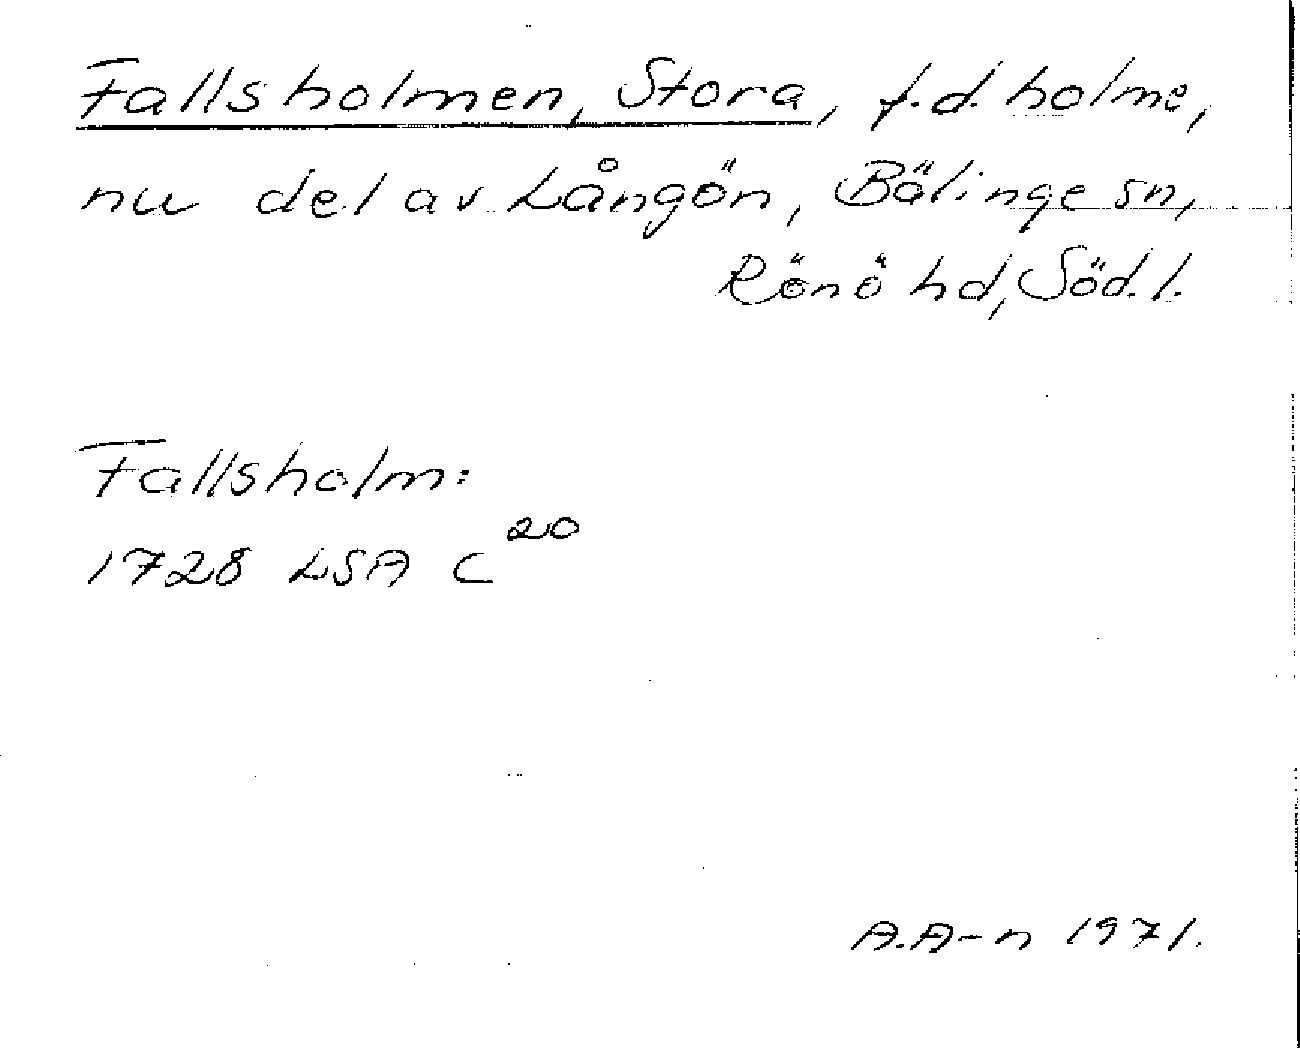 Fallsholmen, Stora, f.d. holme,
nu del av Långön, Bälinge sn,
Rönö hd, Söd.l.
Fallsholm:
1728 LSA C²⁰
A.A-n 1971.